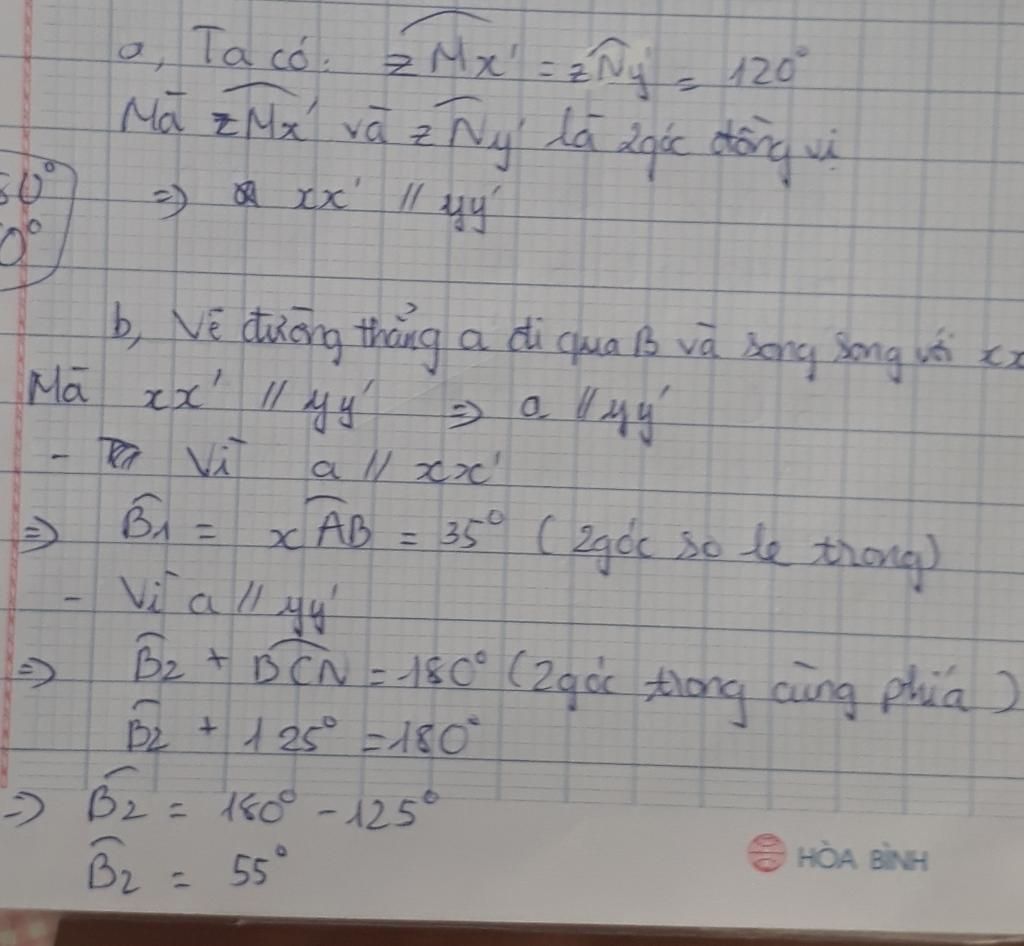 a, Ta có: zMx' = zNy' = 120°
Mà zMx' và zNy' là 2 góc đồng vị
0°
0°
=> xx' // yy'
b, Vẽ đường thẳng a đi qua B và song song với xx
Mà xx' // yy' => a // yy'
- Vì a // xx'
=> B1 = xAB = 35° (2 góc so le trong)
- Vì a // yy'
=> B2 + BCN = 180° (2 góc trong cùng phía)
B2 + 125° = 180°
=> B2 = 180° - 125°
B2 = 55°
HÒA BÌNH